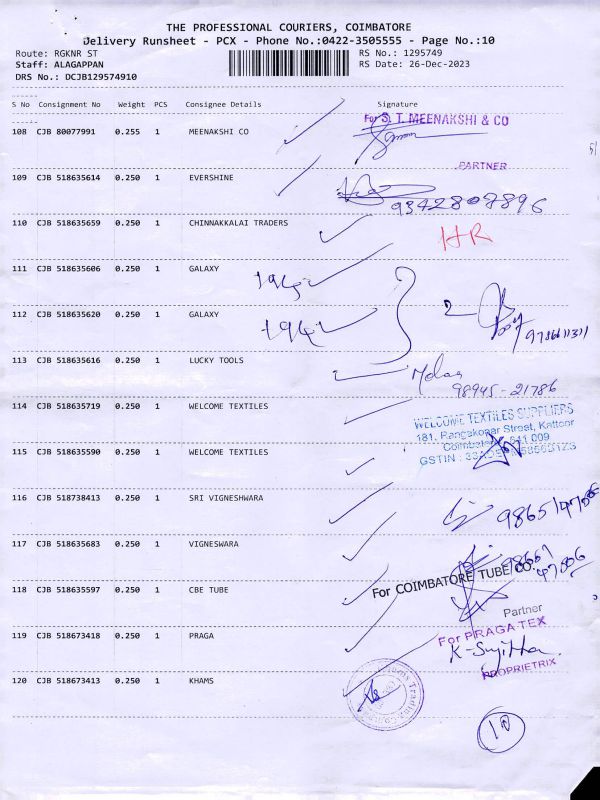 THE PROFESSIONAL COURIERS, COIMBATORE
Delivery Runsheet - PCX - Phone No.:0422-3505555 - Page No.:10
Route: RGKNR ST
RS No.: 1295749
Staff: ALAGAPPAN
RS Date: 26-Dec-2023
DRS No.: DCJB129574910
S No Consignment No Weight PCS Consignee Details Signature
For S. T. MEENAKSHI & CO
108 CJB 80077991 0.255 1 MEENAKSHI CO
PARTNER
109 CJB 518635614 0.250 1 EVERSHINE
9342807896
110 CJB 518635659 0.250 1 CHINNAKKALAI TRADERS
HR
111 CJB 518635606 0.250 1 GALAXY
112 CJB 518635620 0.250 1 GALAXY
2
113 CJB 518635616 0.250 1 LUCKY TOOLS
98945-21786
114 CJB 518635719 0.250 1 WELCOME TEXTILES
WELCOME TEXTILES SUPPLIERS
181, Rangakonar Street, Kattoor
Coimbatore 641 009
GSTIN :
115 CJB 518635590 0.250 1 WELCOME TEXTILES
116 CJB 518738413 0.250 1 SRI VIGNESHWARA
117 CJB 518635683 0.250 1 VIGNESWARA
For COIMBATORE TUBE CO.
118 CJB 518635597 0.250 1 CBE TUBE
Partner
119 CJB 518673418 0.250 1 PRAGA
For PRAGA TEX
PROPRIETRIX
120 CJB 518673413 0.250 1 KHAMS
10